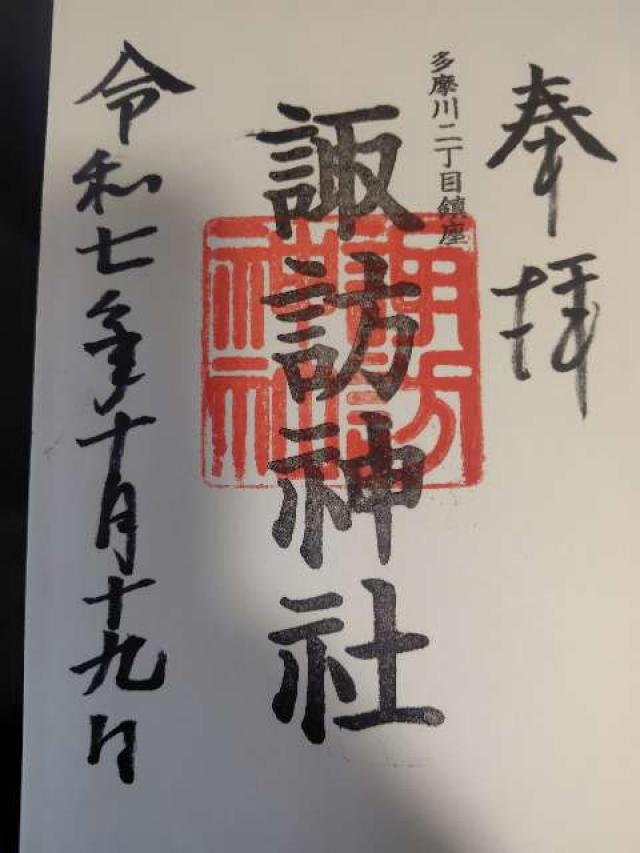 奉拝
多摩川二丁目鎮座
諏訪神社
諏訪
神社
令和七年十月十九日